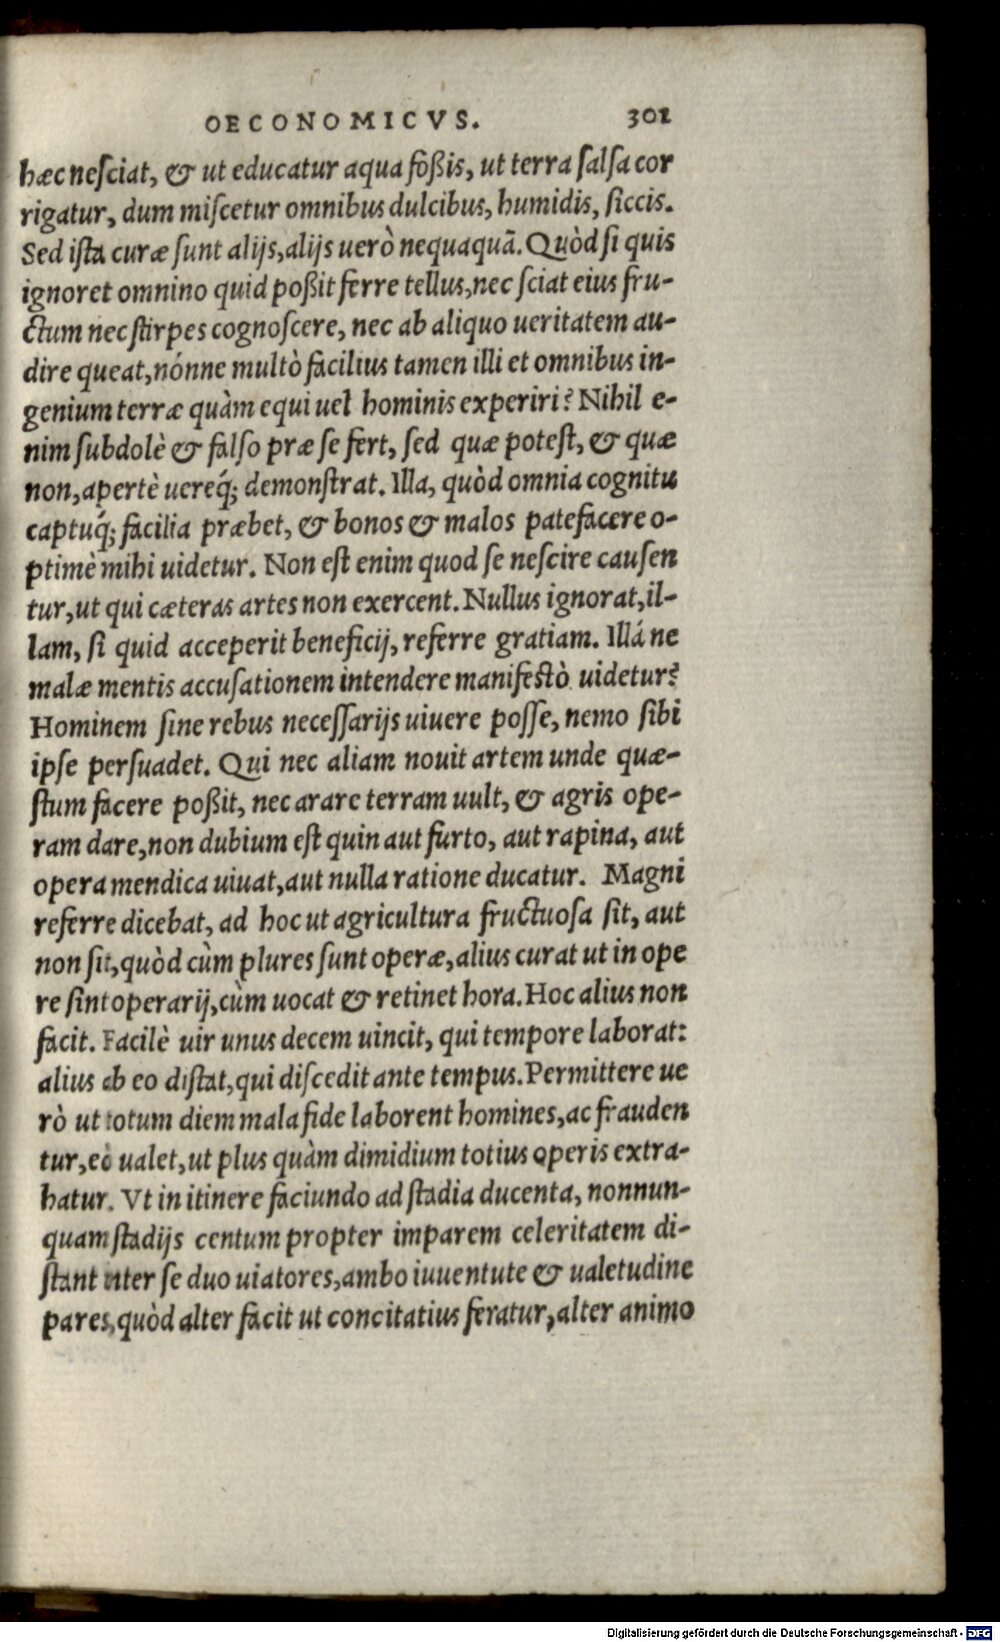 OECONOMICVS. 301
hæc nesciat, & ut educatur aqua foßis, ut terra salsa cor
rigatur, dum miscetur omnibus dulcibus, humidis, siccis.
Sed ista curæ sunt alijs, alijs uerò nequaquā. Quòd si quis
ignoret omnino quid poßit ferre tellus, nec sciat eius fru-
ctum nec stirpes cognoscere, nec ab aliquo ueritatem au-
dire queat, nónne multò facilius tamen illi et omnibus in-
genium terræ quàm equi uel hominis experiri? Nihil e-
nim subdolè & falso præ se fert, sed quæ potest, & quæ
non, apertè uereq́; demonstrat. Illa, quòd omnia cognitu
captuq́; facilia præbet, & bonos & malos patefacere o-
ptimè mihi uidetur. Non est enim quod se nescire causen
tur, ut qui cæteras artes non exercent. Nullus ignorat, il-
lam, si quid acceperit beneficij, referre gratiam. Illá ne
malæ mentis accusationem intendere manifestò uidetur?
Hominem sine rebus necessarijs uiuere posse, nemo sibi
ipse persuadet. Qui nec aliam nouit artem unde quæ-
stum facere poßit, nec arare terram uult, & agris ope-
ram dare, non dubium est quin aut furto, aut rapina, aut
opera mendica uiuat, aut nulla ratione ducatur. Magni
referre dicebat, ad hoc ut agricultura fructuosa sit, aut
non sit, quòd cùm plures sunt operæ, alius curat ut in ope
re sint operarij, cùm uocat & retinet hora. Hoc alius non
facit. Facilè uir unus decem uincit, qui tempore laborat:
alius ab eo distat, qui discedit ante tempus. Permittere ue
rò ut totum diem mala fide laborent homines, ac frauden
tur, eò ualet, ut plus quàm dimidium totius operis extra-
hatur. Vt in itinere faciundo ad stadia ducenta, nonnun-
quam stadijs centum propter imparem celeritatem di-
stant inter se duo uiatores, ambo iuuentute & ualetudine
pares, quòd alter facit ut concitatius feratur, alter animo
Digitalisierung gefördert durch die Deutsche Forschungsgemeinschaft - DFG